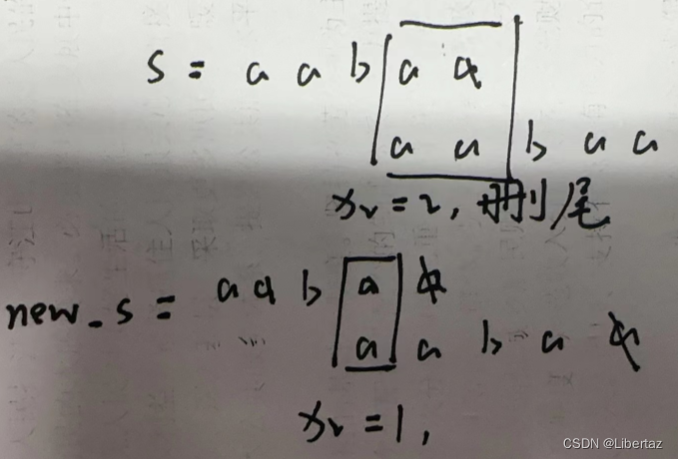 s = a a b a a
a a b a a
xr = 2, 删尾
new_s = a a b a a
a a b a a
xr = 1,
CSDN @Libertaz